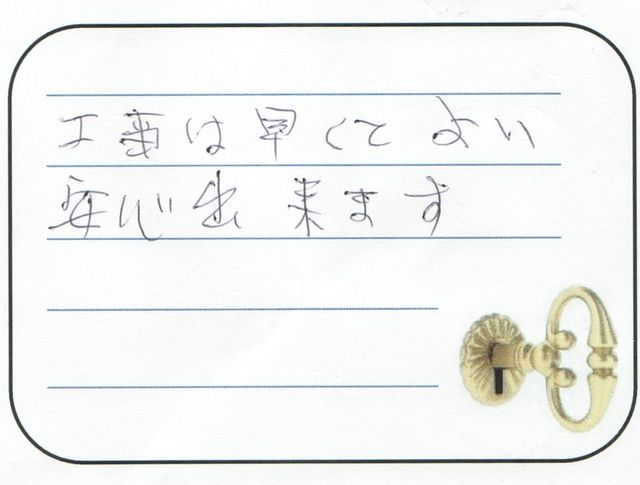 工事は早くてよい
安心出来ます